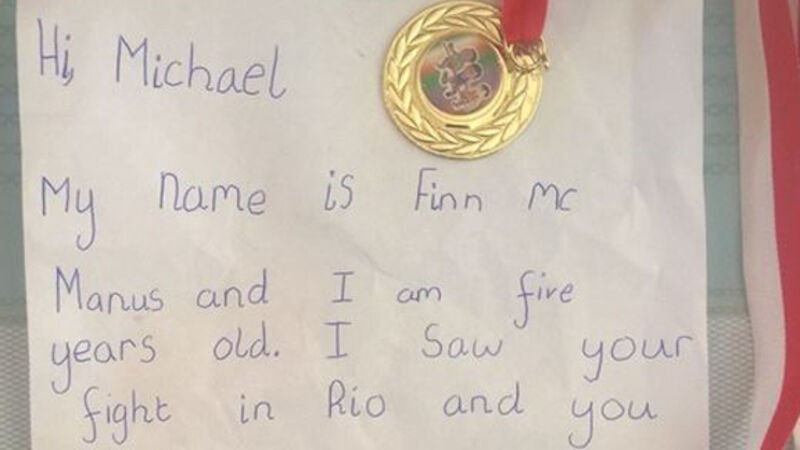 Hi, Michael
My name is Finn Mc
Manus and I am five
years old. I saw your
fight in Rio and you